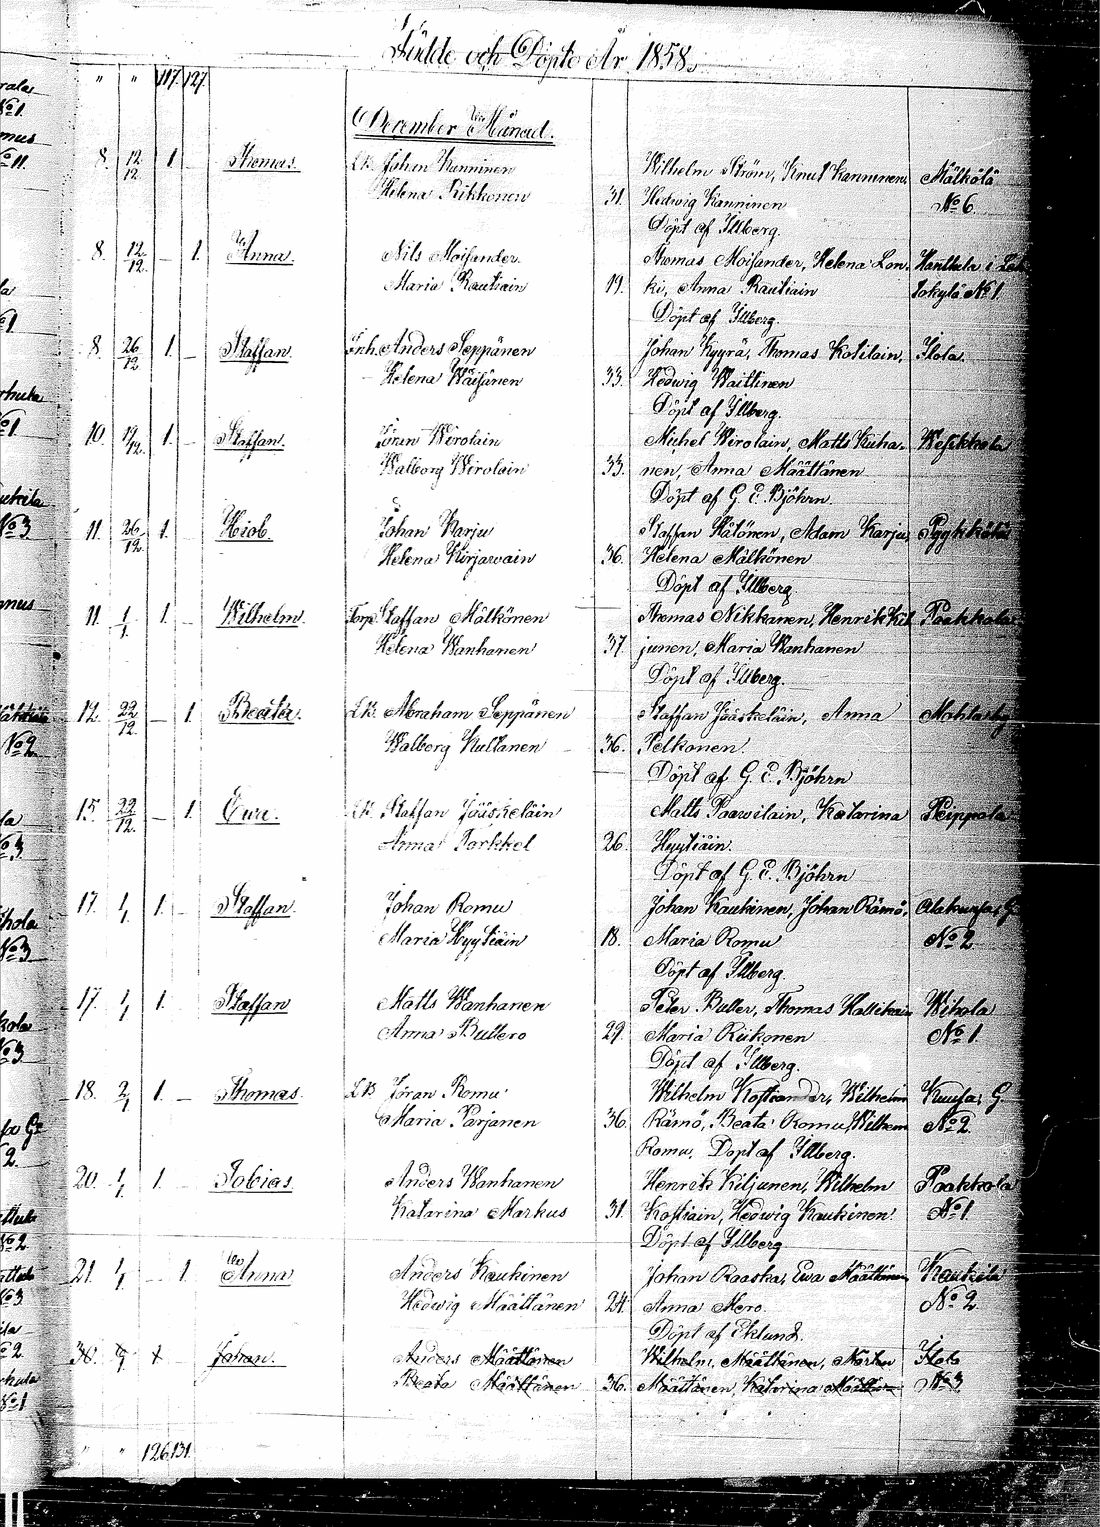 Födde och Döpte År 1858.
" " 117. 127.
December Månad.
8. 12/12 1 — Thomas. LB. Johan Kanninen Wilhelm Ström, Knut Kanninen, Mälkölä
Helena Rikkonen 31. Hedwig Kanninen No 6.
Döpt af Illberg.
8. 12/12. — 1. Anna. Nils Moisander. Thomas Moisander, Helena Lon- Hanttula i
Maria Rautiain 19. ki, Anna Rautiain tokylä No 1.
Döpt af Illberg.
8. 26/12 1. — Staffan. Inh. Anders Seppänen Johan Kyyrä, Thomas Kotilain, Ilola.
Helena Wäisänen 33. Hedwig Waittinen
Döpt af Illberg.
10. 19/12. 1. — Staffan. Jöran Wirolain Michel Wirolain, Matts Kuha- Wesikkola
Walborg Wirolain 33. nen, Anna Määttänen
Döpt af G. E. Björn.
11. 26/12. 1. Hiob. Johan Karju Staffan Hätönen, Adam Karju,
Helena Kirjawain 36. Helena Mälkönen
Döpt af Illberg.
11. 1/1. 1. Wilhelm. Torp. Staffan Mälkönen Thomas Nikkanen, Henrik Kil Paakkola
Helena Wanhanen 37. junen, Maria Wanhanen
Döpt af Illberg.
12. 22/12. — 1. Beata. LB. Abraham Seppänen Staffan Jääskeläin, Anna
Walborg Kultanen 36. Pelkonen.
Döpt af G. E. Björn
15. 22/12. — 1. Eva. LB. Staffan Jääskeläin Matts Paawilain, Katarina Peippola
Anna Torkkel 26. Hyytiäin.
Döpt af G. E. Björn
17. 1/1 1. — Staffan. Johan Romu Johan Kaukinen, Johan Rämö, Alakuusa, G
Maria Hyytiäin 18. Maria Romu No 2
Döpt af Illberg.
17. 1/1 1. — Staffan Matts Wanhanen Peter Butler, Thomas Wikola
Anna Buttero 29. Maria Riikonen No 1.
Döpt af Illberg.
18. 2/1 1. — Thomas. LB Jöran Romu Wilhelm Kostiander, Wilhelm Kuusa, G
Maria Parjanen 36. Rämö, Beata Romu, Wilhelm No 2.
Romu. Döpt af Illberg.
20. 1/1 1. — Tobias. Anders Wanhanen Henrik Kiljunen, Wilhelm Paakkola
Katarina Markus 31. Kostiain, Hedwig Kaukinen. No 1.
Döpt af Illberg
21. 1/1 — 1. Anna Anders Kaukinen Johan Raaska, Ewa Määttänen Kaukila
Hedwig Määttänen 24. Anna Mero. No 2
Döpt af Eklund.
30. 1 — Johan. Anders Määttänen Wilhelm Määttänen, Morten Ilola
Beata Määttänen 36. Määttänen, Katarina Määttänen No 3
" " 126. 131.